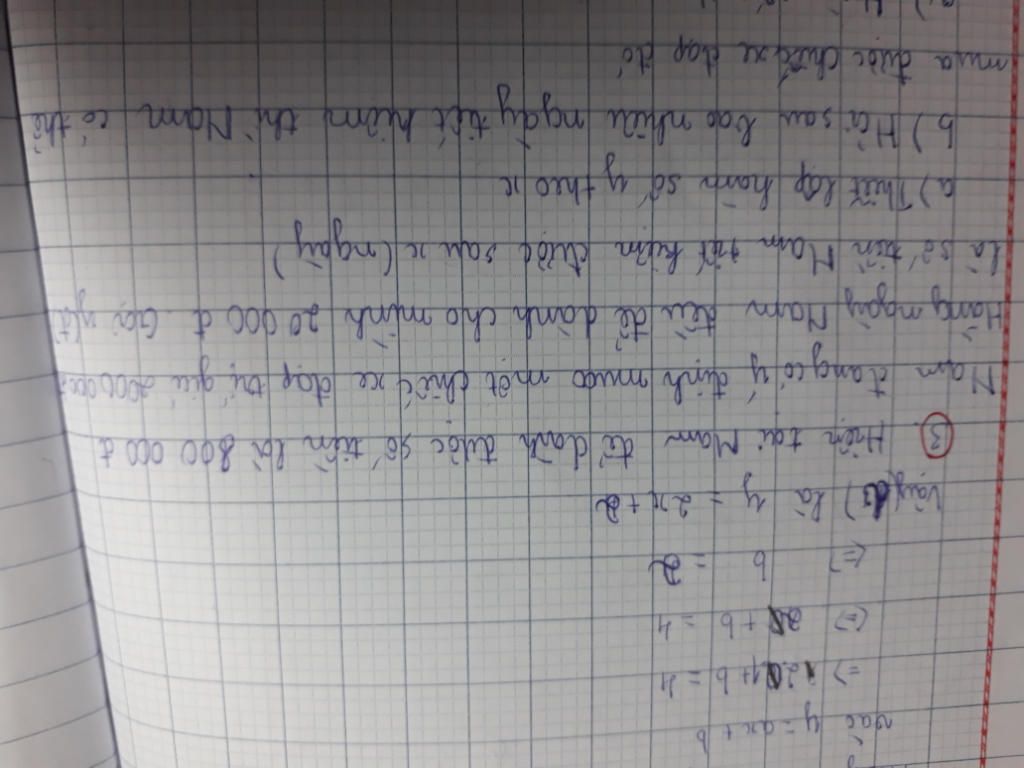 vào y = ax + b
=> 2.1 + b = 4
<=> 2 + b = 4
<=> b = 2
Vậy (d) là y = 2x + 2
③ Hiện tại Nam để dành được số tiền là 800 000 đ
Nam đang có ý định mua một chiếc xe đạp trị giá 2000 000đ
Hằng ngày Nam đều để dành cho mình 20 000 đ. Gọi y(đ)
là số tiền Nam tiết kiệm được sau x (ngày)
a) Thiết lập hàm số y theo x
b) Hỏi sau bao nhiêu ngày tiết kiệm thì Nam có thể
mua được chiếc xe đạp đó